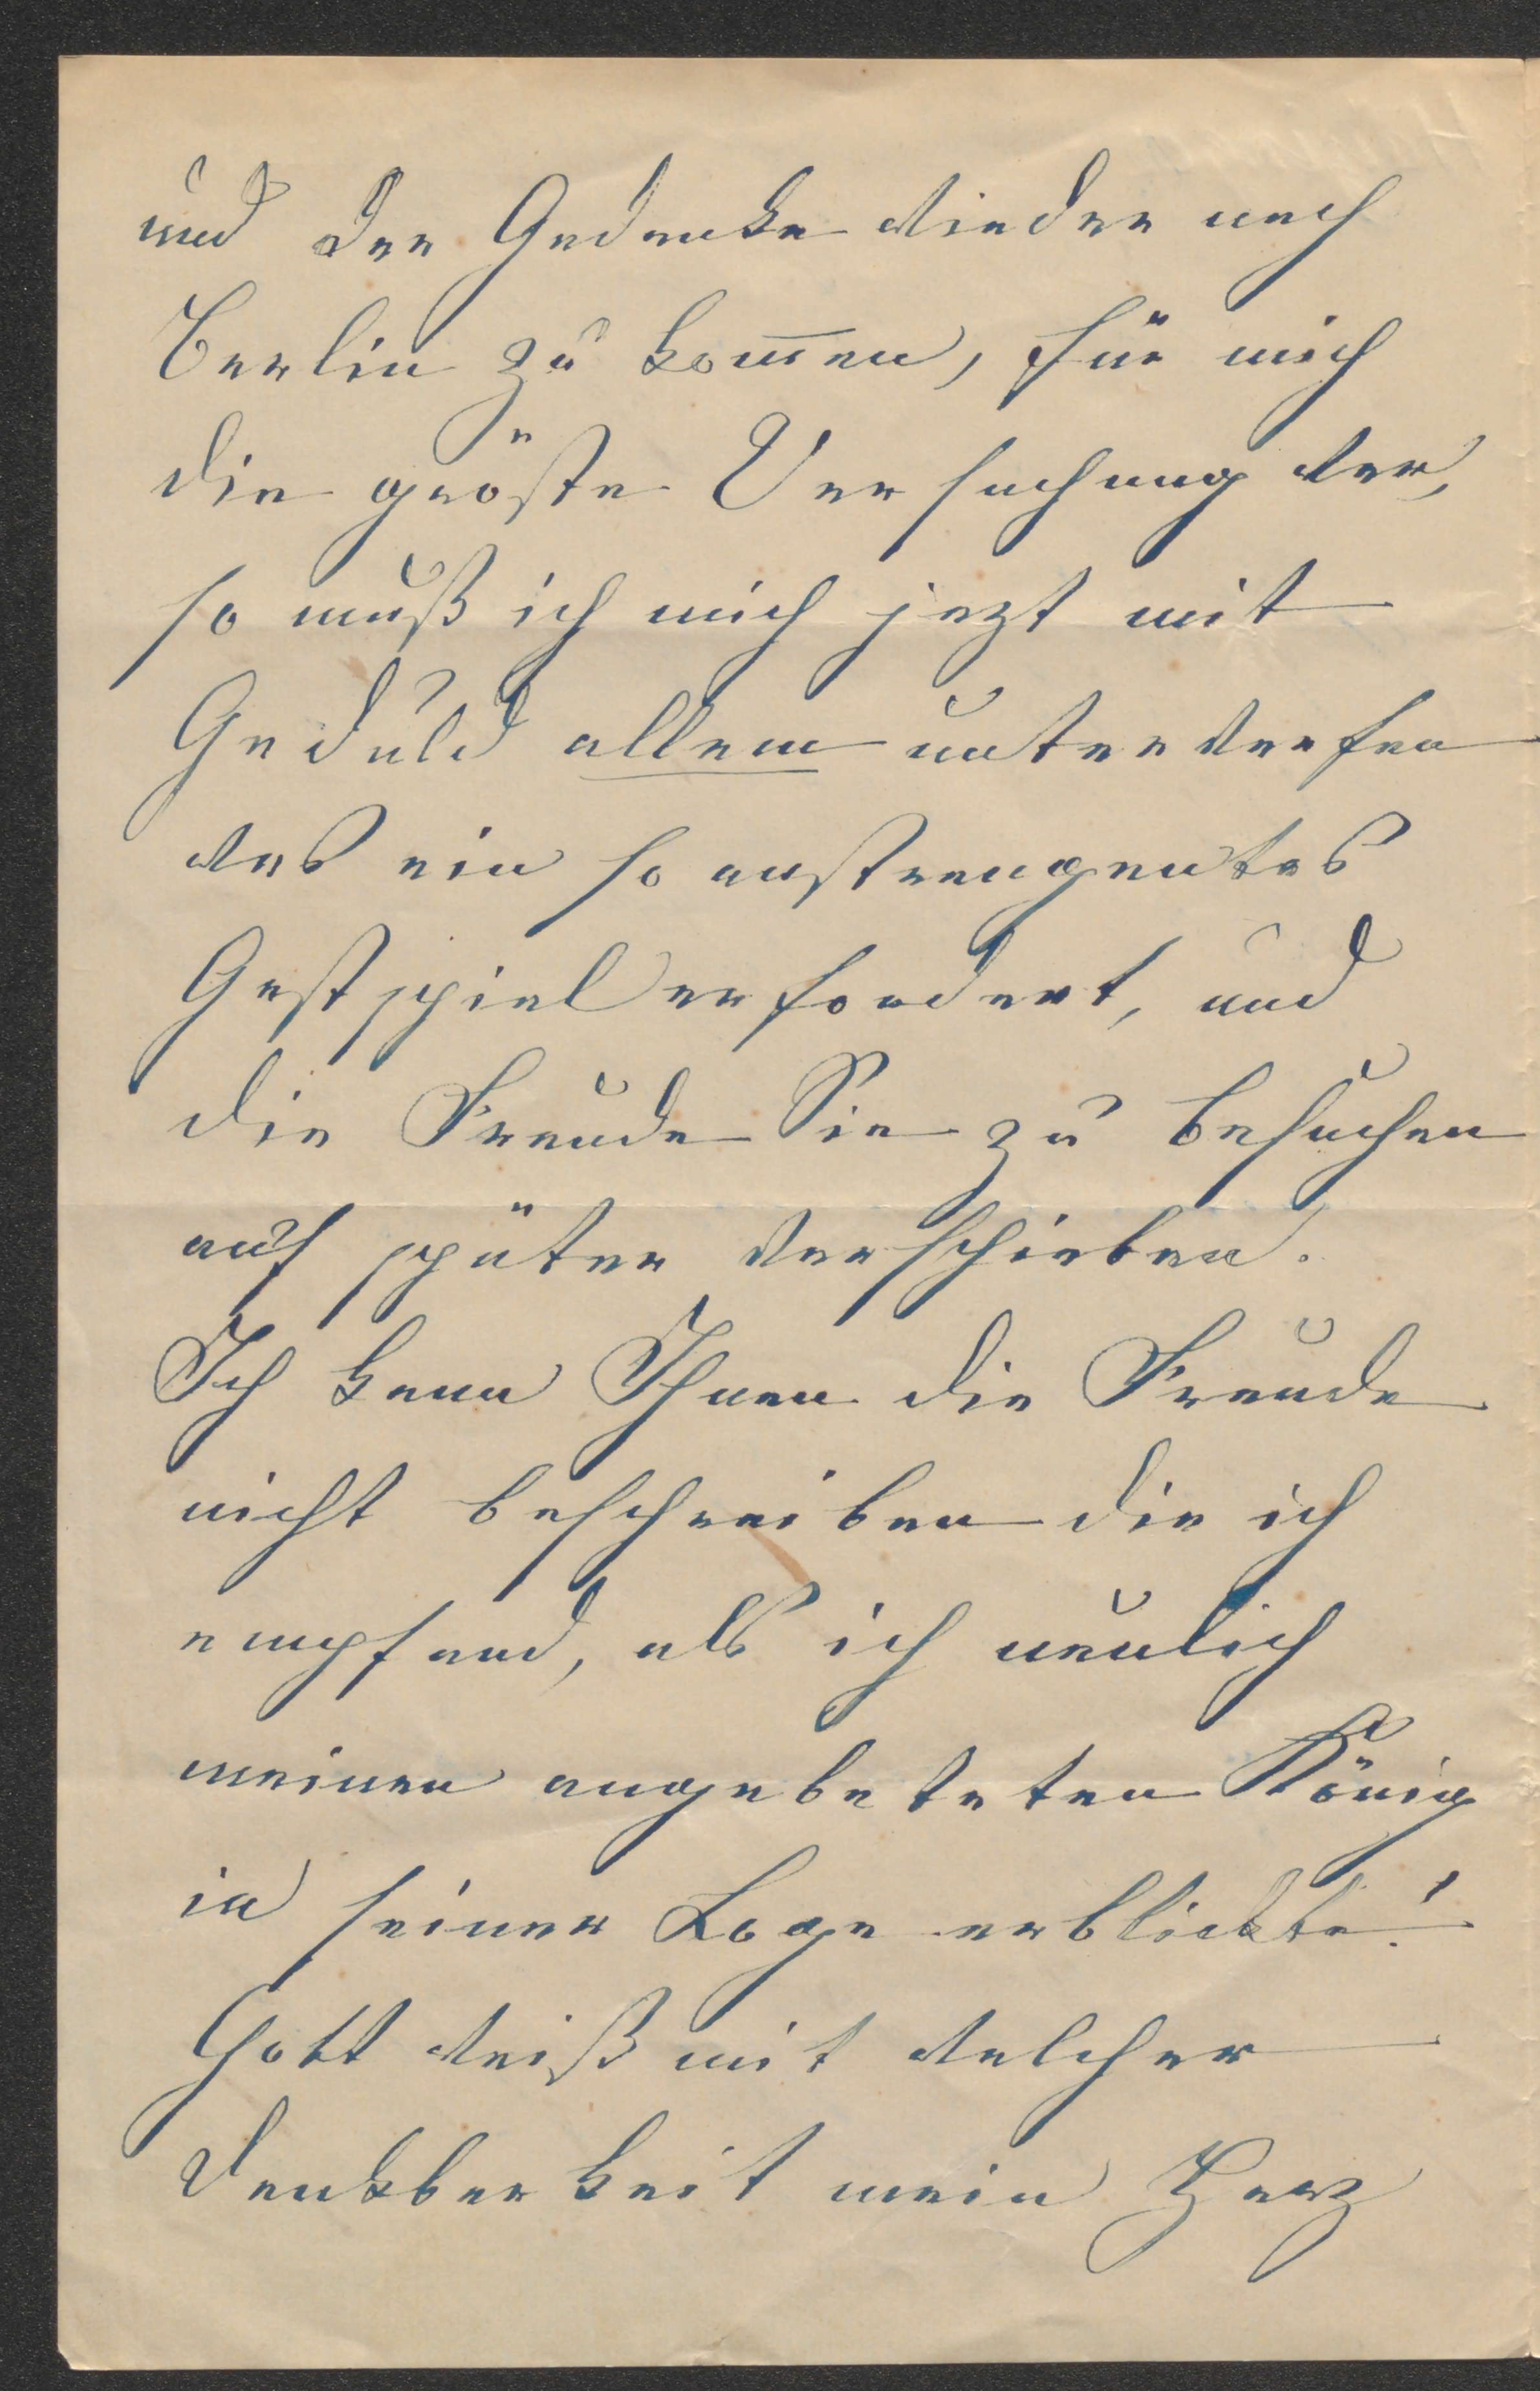 und der Gedanke wieder nach
Berlin zu kom̅en, für mich
die gröste Versuchung war,
so muß ich mich jezt mit
Geduld allem unterwerfen
was ein so anstrengentes
Gastspiel erfordert, und
die Freude Sie zu besuchen
auf später verschieben.
Ich kann Ihnen die Freude
nicht beschreiben die ich
empfand, als ich neulich
meinen angebeteten König
in seiner Loge erblickte!
Gott weiß mit welcher
Dankbarkeit mein Herz